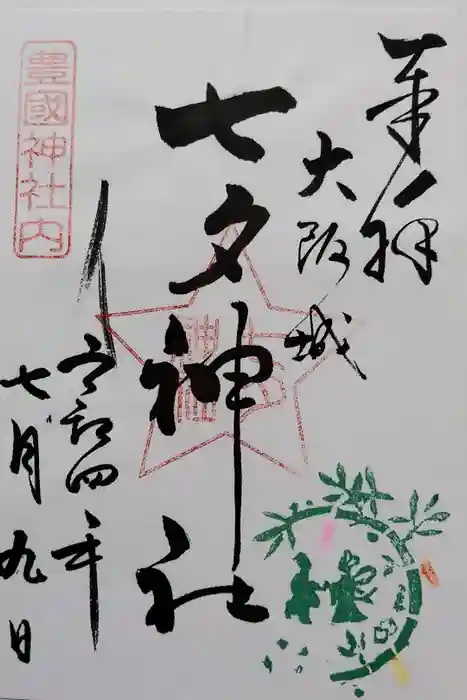 奉拝
大阪城
七夕神社
令和四年
七月九日
豊國神社内